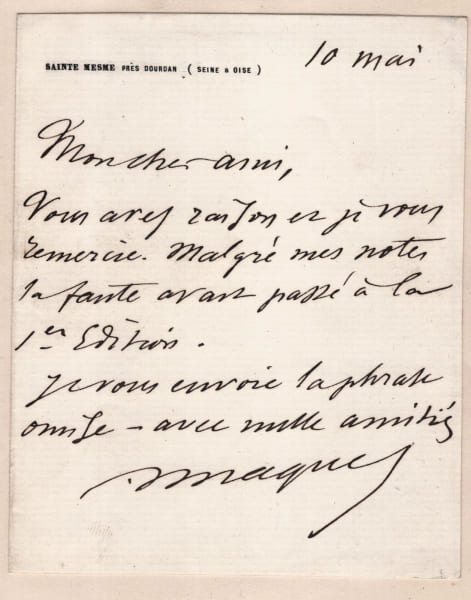 SAINTE MESME PRÈS DOURDAN ( SEINE & OISE )
10 mai
Mon cher ami,
Vous avez raison et je vous
remercie. Malgré mes notes
la faute avait passé à la
1er Edition.
je vous envoie la phrase
omise – avec mille amitiés
AMaquet